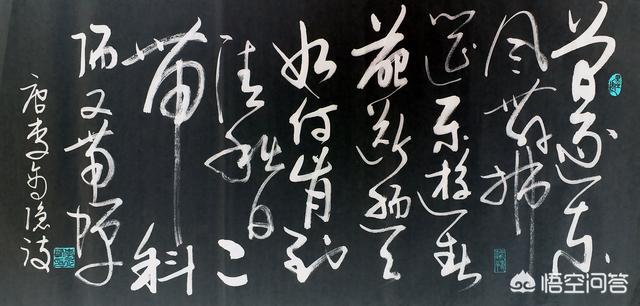 曾逐东
风舞拂
筵乐游春
苑断肠天
如何肯到
清秋日已
带斜
阳又带蝉
唐李商隐诗
悟空问答